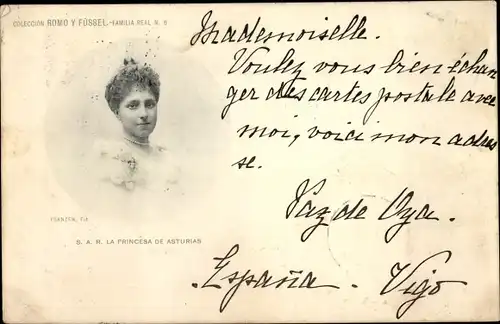 COLECCIÓN ROMO Y FÜSSEL.-FAMILIA REAL N. 6
Mademoiselle.
Voulez vous bien échan
ger des cartes postale avec
moi, voici mon adres
se.
Paz de Oya.
España. Vigo
FRANZEN, Fot
S. A. R. LA PRINCESA DE ASTURIAS